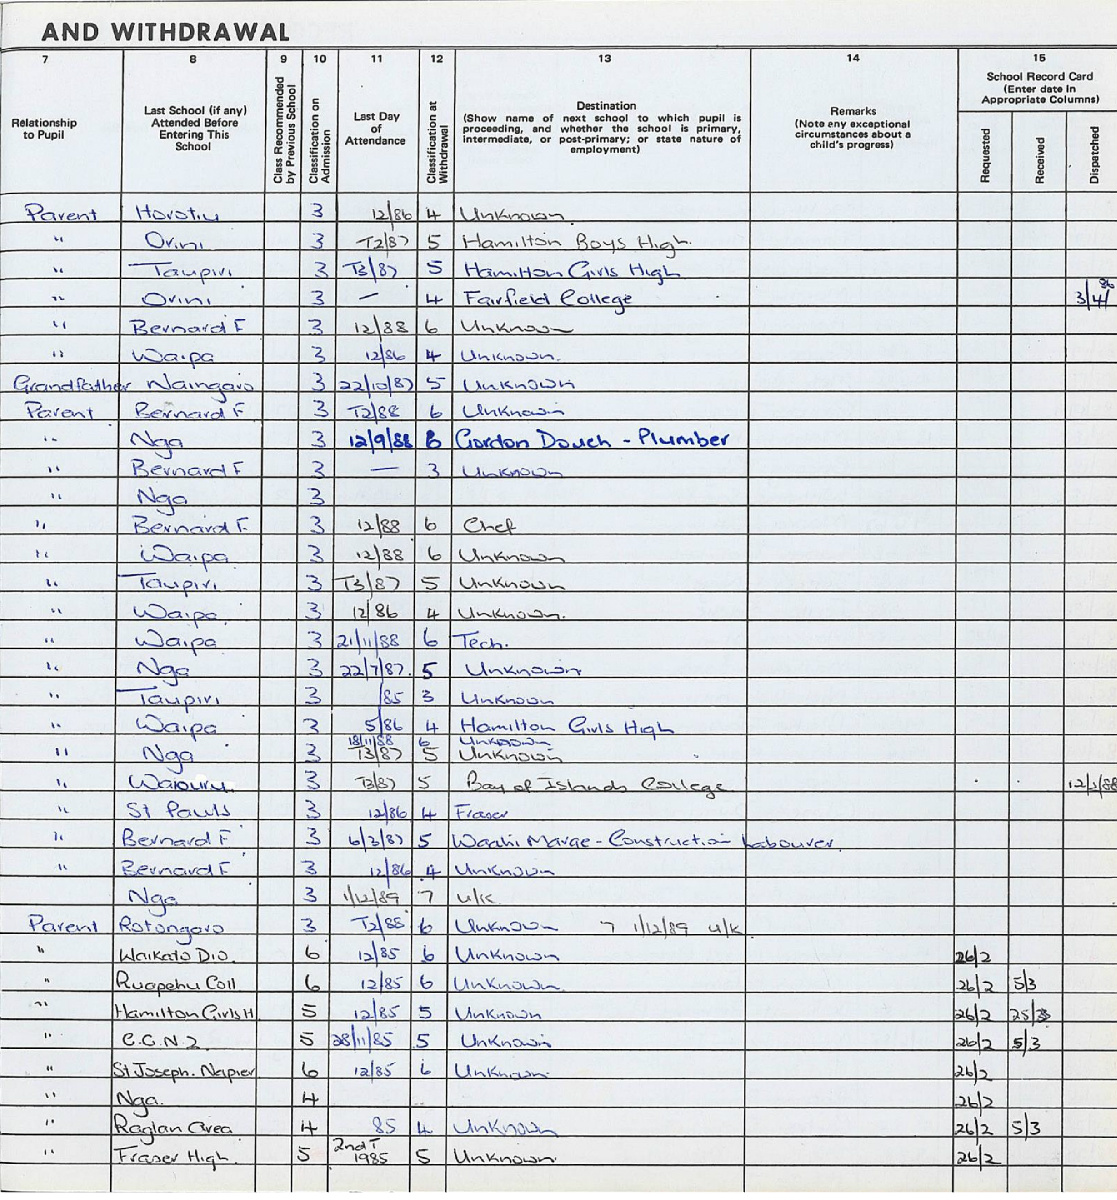 AND WITHDRAWAL
7 8 9 10 11 12 13 14 15
Relationship to Pupil
Last School (if any) Attended Before Entering This School
Class Recommended by Previous School
Classification on Admission
Last Day of Attendance
Classification at Withdrawal
Destination
(Show name of next school to which pupil is proceeding, and whether the school is primary, intermediate, or post-primary; or state nature of employment)
Remarks
(Note any exceptional circumstances about a child's progress)
School Record Card
(Enter date in Appropriate Columns)
Requested
Received
Dispatched
Parent Horotiu 3 12/86 4 Unknown
" Orini 3 T2/87 5 Hamilton Boys High.
" Taupiri 3 T3/87 5 Hamilton Girls High
" Orini 3 — 4 Fairfield College 3/4/86
" Bernard F 3 12/88 6 Unknown
" Waipa 3 12/86 4 Unknown.
Grandfather Naingaro 3 22/10/87 5 Unknown
Parent Bernard F 3 T2/88 6 Unknown
" Nga 3 12/9/88 6 Gordon Douch - Plumber
" Bernard F 3 — 3 Unknown
" Nga 3
" Bernard F. 3 12/88 6 Chef
" Waipa 3 12/88 6 Unknown
" Taupiri 3 T3/87 5 Unknown
" Waipa 3 12/86 4 Unknown.
" Waipa 3 21/11/88 6 Tech.
" Nga 3 22/7/87. 5 Unknown
" Taupiri 3 /85 3 Unknown
" Waipa 3 5/86 4 Hamilton Girls High
18/11/88 6 Unknown
" Nga 3 T3/87 5 Unknown
" Waiouru 3 T3/87 5 Bay of Islands College 12/2/88
" St Pauls 3 12/86 4 Fraser
" Bernard F 3 6/3/87 5 Waahi Marae - Construction Labourer.
" Bernard F 3 12/86 4 Unknown
Nga 3 1/12/89 7 u/k
Parent Rotongaro 3 T2/88 6 Unknown 7 1/12/89 u/k
" Waikato Dio. 6 12/85 6 Unknown 26/2
" Ruapehu Coll 6 12/85 6 Unknown 26/2 5/3
" Hamilton Girls H 5 12/85 5 Unknown 26/2 25/3
" C.G.N.Z. 5 28/11/85 5 Unknown 26/2 5/3
" St Joseph. Napier 6 12/85 6 Unknown 26/2
" Nga. 4 26/2
" Raglan Area 4 85 4 Unknown 26/2 5/3
" Fraser High. 5 2nd T 1985 5 Unknown 26/2